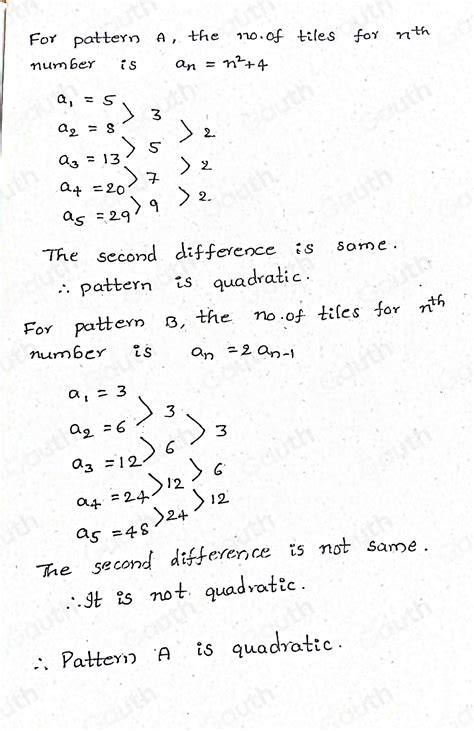 For pattern A, the no.of tiles for nth
number is an = n²+4
a1 = 5
3
a2 = 8
2
5
a3 = 13
2
7
a4 = 20
2
9
a5 = 29
The second difference is same.
∴ pattern is quadratic.
For pattern B, the no.of tiles for nth
number is an = 2 an-1
a1 = 3
3
a2 = 6
3
6
a3 = 12
6
12
a4 = 24
12
24
a5 = 48
The second difference is not same.
∴ It is not quadratic.
∴ Pattern A is quadratic.